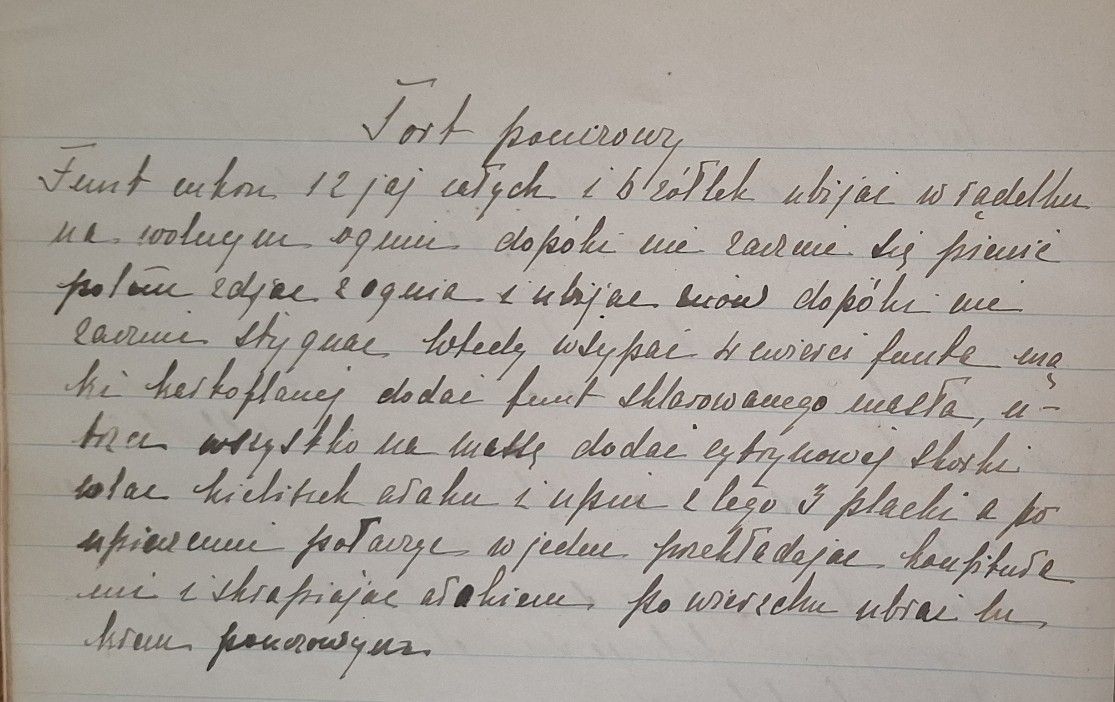 Tort ponczowy
Funt cukru 12 jaj całych i 6 żółtek ubijać w rądelku
na wolnym ogniu dopóki nie zacznie się pienić
potem zdjąć z ognia i ubijać znów dopóki nie
zacznie stygnąć wtedy wsypać 4 ćwierci funta mą
ki kartoflanej dodać funt sklarowanego masła, u-
trzeć wszystko na massę dodać cytrynowej skórki
wlać kieliszek araku i upiec z tego 3 placki a po
upieczeniu połączyć w jeden przekładając konfitura
mi i skrapiając arakiem po wierzchu ubrać lu
krem ponczowym